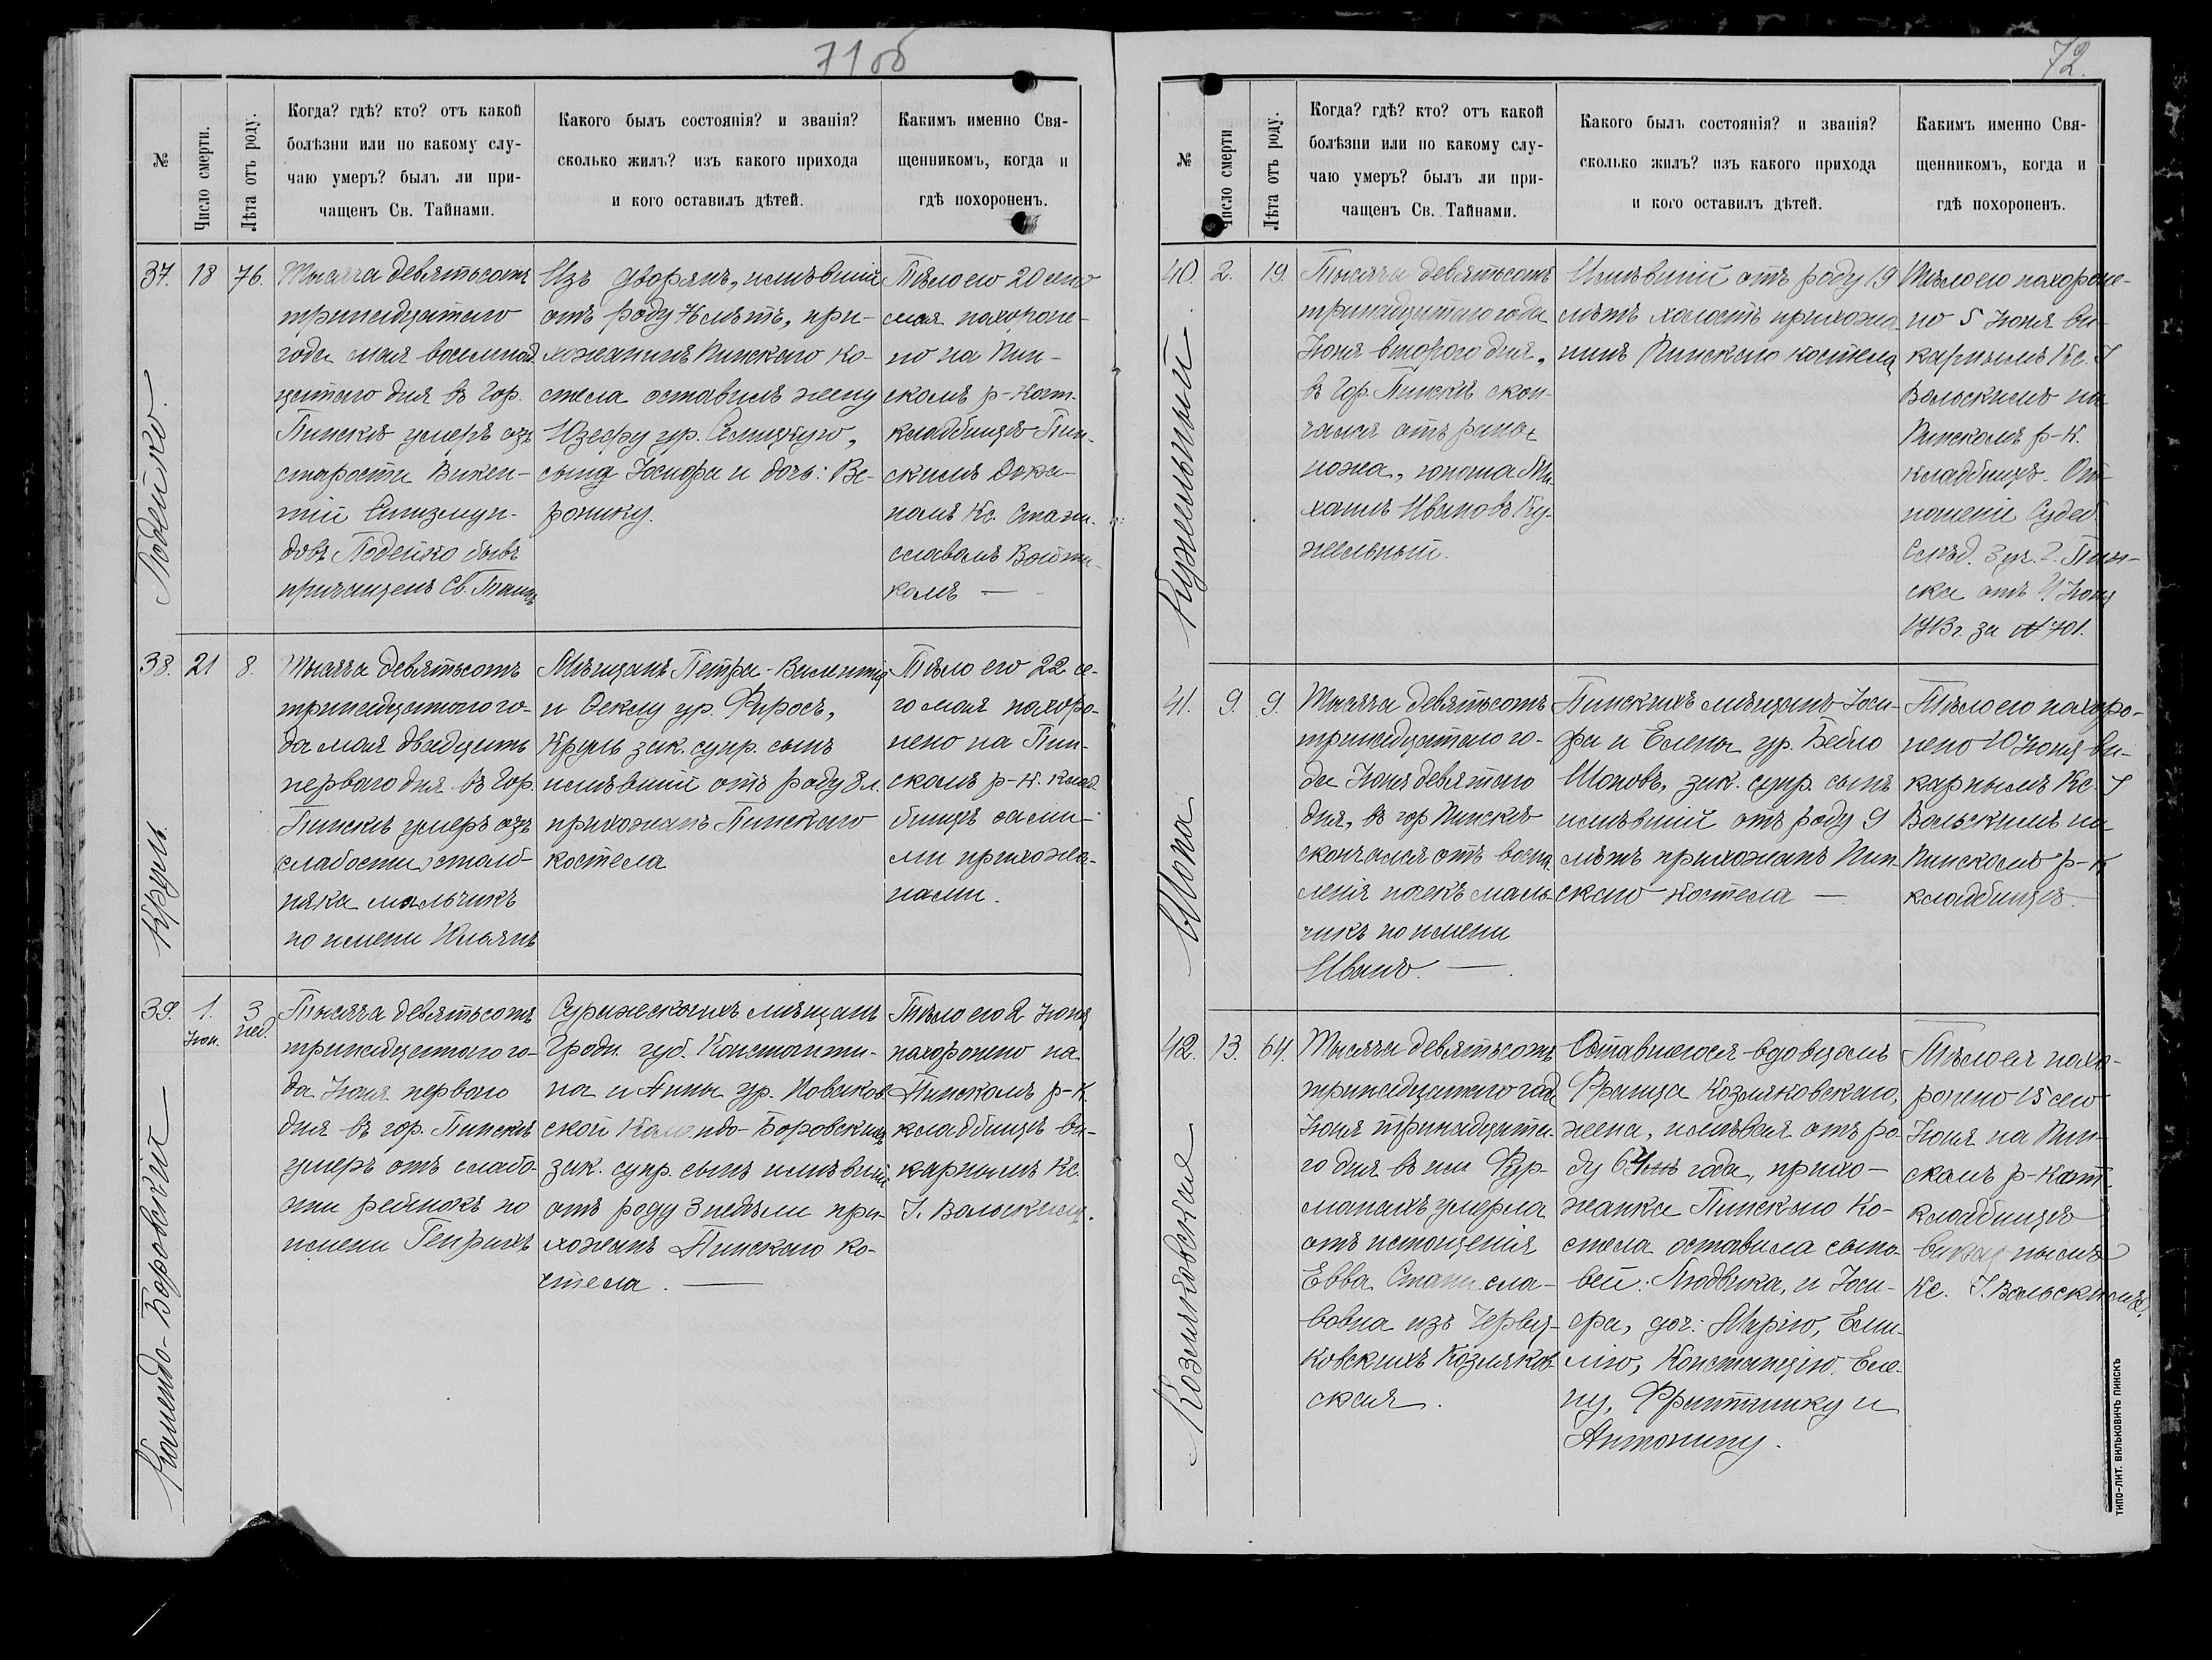 71об
№
Число смерти.
Лѣта отъ роду.
Когда? гдѣ? кто? отъ какой
болѣзни или по какому слу-
чаю умеръ? былъ ли при-
чащенъ Св. Тайнами.
Какого былъ состоянія? и званія?
сколько жилъ? изъ какого прихода
и кого оставилъ дѣтей.
Какимъ именно Свя-
щенникомъ, когда и
гдѣ похороненъ.
37.
18
76.
Подейко.
Тысяча девятьсотъ
тринадцатаго
года мая восемнад
цатаго дня въ гор.
Пинскѣ умеръ отъ
старости Викен-
тій Сигизмун-
довъ Подейко бывъ
причащенъ Св. Таинъ
Изъ дворянъ, имѣвшій
отъ роду 76 лѣтъ, при-
хожанинъ Пинскаго Ко-
стела оставилъ жену
Юзефу ур.
сына Іосифа и дочь: Ве-
ронику.
Тѣло его 20 сего
мая похороне-
но на Пин-
скомъ р-Кат.
кладбищѣ Пин-
скимъ Дека-
номъ Кс. Стани-
славомъ Войти-
комъ —
38.
21
8.
Круль.
Тысяча девятьсотъ
тринадцатаго го-
да мая двадцать
перваго дня въ гор.
Пинскѣ умеръ отъ
слабости столб-
няка мальчикъ
по имени Юльянъ
Мѣщанъ Петра-Викентія
и Феклы ур. Фиросъ,
Круль зак. супр. сынъ
имѣвшій отъ роду 8 л.
прихожанъ Пинскаго
костела
Тѣло его 22 се-
го мая похоро-
нено на Пин-
скомъ р-К. клад
бищѣ сами-
ми прихожа-
нами.
39.
1.
Іюн.
3
нед.
Камендо-Боровскій
Тысяча девятьсотъ
тринадцатаго го-
да Іюня перваго
дня въ гор. Пинскѣ
умеръ отъ слабо-
сти ребенокъ по
имени Генрихъ
Суражскихъ мѣщанъ
Гродн. губ. Константи-
на и Анны ур. Новаков-
ской Камендо-Боровскихъ
зак. супр. сынъ имѣвшій
отъ роду 3 недѣли при-
хожанъ Пинскаго ко-
стела. —
Тѣло его 2 Іюня
похоронено на
Пинскомъ р-К.
кладбищѣ ви-
карнымъ Кс.
І. Вольскимъ.
72.
№
Число смерти
Лѣта отъ роду.
Когда? гдѣ? кто? отъ какой
болѣзни или по какому слу-
чаю умеръ? былъ ли при-
чащенъ Св. Тайнами.
Какого былъ состоянія? и званія?
сколько жилъ? изъ какого прихода
и кого оставилъ дѣтей.
Какимъ именно Свя-
щенникомъ, когда и
гдѣ похороненъ.
40.
2.
19.
Кужельный.
Тысяча девятьсотъ
тринадцатаго года
Іюня второго дня,
въ гор. Пинскѣ скон-
чался отъ ранъ
ножа, юноша Ми-
хаилъ Ивановъ Ку-
жельный.
Имѣвшій отъ роду 19
лѣтъ холостъ прихожа-
нинъ Пинскаго костела
Тѣло его похороне-
но 5 Іюня ви-
карнымъ Кс. І
Вольскимъ на
Пинскомъ р-К.
кладбищѣ. От-
ношеніе Судеб.
Слѣд. 3 уч. г. Пин-
ска отъ Іюня
1913 г. за № 701.
41.
9.
9.
Шопа
Тысяча девятьсотъ
тринадцатаго го-
да Іюня девятаго
дня, въ гор Пинскѣ
скончался отъ воспа
ленія почекъ маль-
чикъ по имени
Иванъ. —
Пинскихъ мѣщанъ Іоси-
фа и Елены ур. Бебло
Шоповъ, зак. супр. сынъ
имѣвшій отъ роду 9
лѣтъ прихожанъ Пин-
скаго костела —
Тѣло его похоро-
нено 10 Іюня ви-
карнымъ Кс. І
Вольскимъ на
Пинскомъ р-К
кладбищѣ.
42.
13.
64.
Козляковская
Тысяча девятьсотъ
тринадцатаго года
Іюня тринадцата-
го дня въ им Фур-
манахъ умерла
отъ истощенія
Евва Станисла-
вовна изъ Червя-
ковскихъ Козляков-
ская.
Оставшагося вдовцомъ
Франца Козляковскаго,
жена, имѣвая отъ ро-
ду 64 года, прихо-
жанка Пинскаго Ко-
стела оставила сыно-
вей: Людвика, и Іоси-
фа, доч: Марію, Еми-
лію, Констанцію, Еле-
ну, и
Антонину.
Тѣло ея похо-
ронено 15 сего
Іюня на Пин-
скомъ р-Кат.
кладбищѣ
викарнымъ
Кс. І. Вольскимъ.
ТИПО-ЛИТ. ВИЛЬКОВИЧЪ ПИНСКЪ